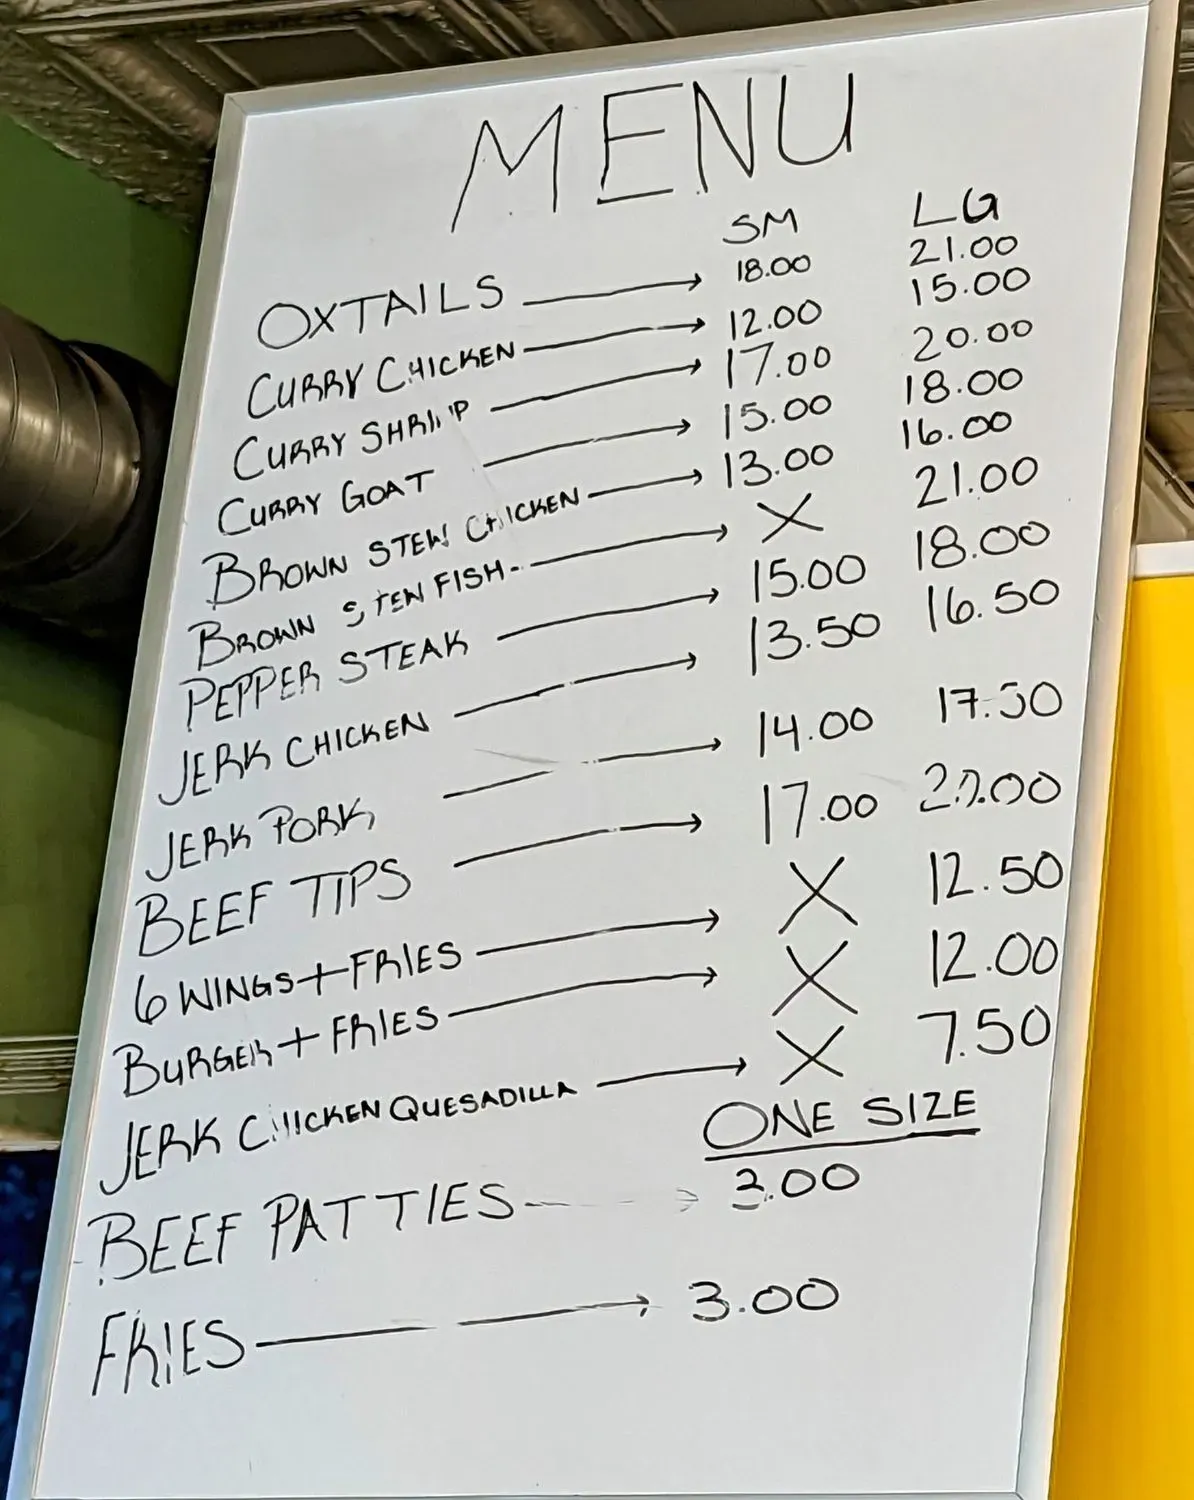 MENU
SM LG
OXTAILS 18.00 21.00
CURRY CHICKEN 12.00 15.00
CURRY SHRIMP 17.00 20.00
CURRY GOAT 15.00 18.00
BROWN STEW CHICKEN 13.00 16.00
BROWN STEW FISH X 21.00
PEPPER STEAK 15.00 18.00
JERK CHICKEN 13.50 16.50
JERK PORK 14.00 17.50
BEEF TIPS 17.00
6 WINGS + FRIES X 12.50
BURGER + FRIES X 12.00
JERK CHICKEN QUESADILLA X 7.50
ONE SIZE
BEEF PATTIES
FRIES 3.00